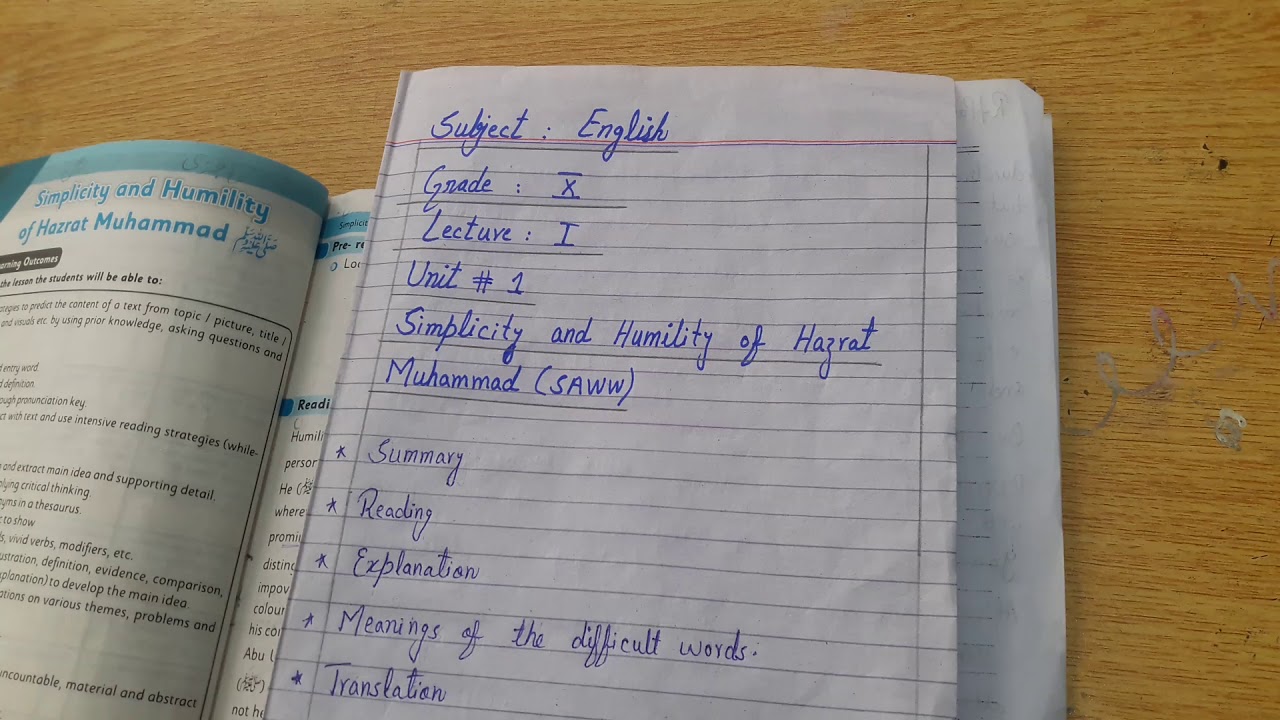 Simplicity and Humility
of Hazrat Muhammad ﷺ
arning Outcomes
the lesson the students will be able to:
ategies to predict the content of a text from topic / picture, title /
and visuals etc. by using prior knowledge, asking questions and
d entry word.
d definition.
ough pronunciation key.
ct with text and use intensive reading strategies (while-
and extract main idea and supporting detail.
plying critical thinking.
nyms in a thesaurus.
t to show
s, vivid verbs, modifiers, etc.
ustration, definition, evidence, comparison,
xplanation) to develop the main idea.
ations on various themes, problems and
ncountable, material and abstract
Simplicit
Pre- re
Loo
Readi
Humili
person
He (ﷺ
where
promi
distinc
impov
colour
his cor
Abu
(ﷺ)
not he
Subject : English
Grade : X
Lecture : I
Unit # 1
Simplicity and Humility of Hazrat
Muhammad (SAWW)
* Summary
* Reading
* Explanation
* Meanings of the difficult words.
* Translation